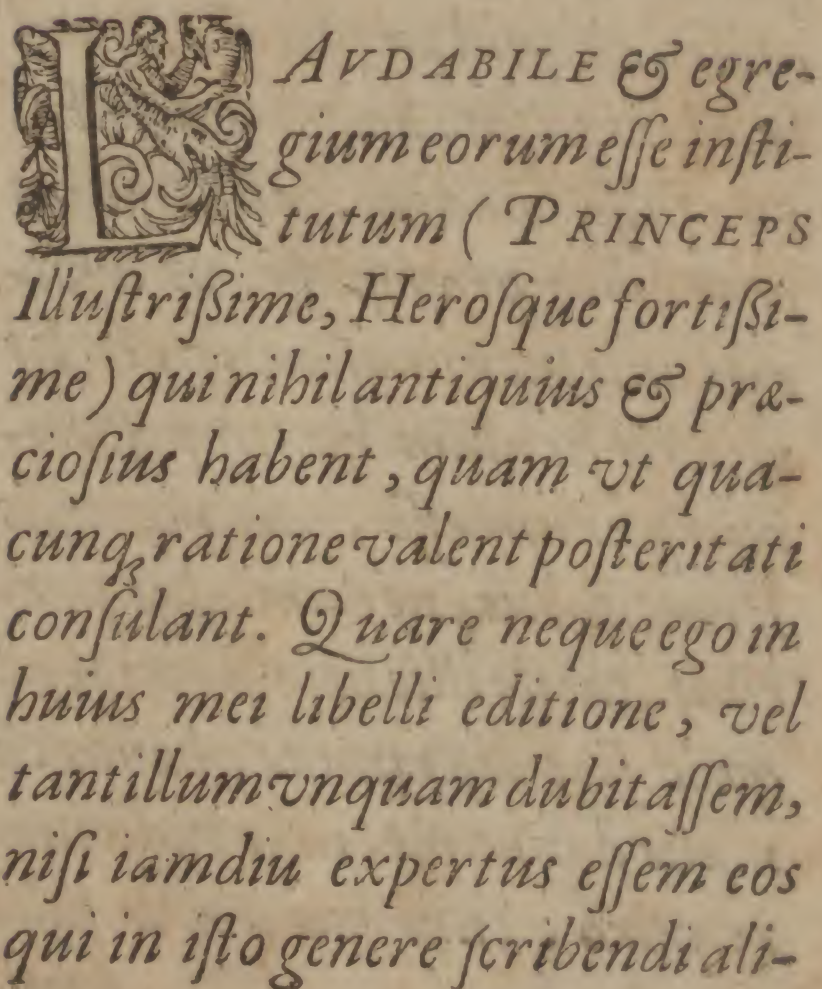 LAVDABILE & egre-
gium eorum eſſe inſti-
tutum (PRINCEPS
Illuſtriſſime, Heroſque fortiſſi-
me) qui nihil antiquius & præ-
cioſius habent, quam vt qua-
cunq; ratione valent poſteritati
conſulant. Quare neque ego in
huius mei libelli editione, vel
tantillum vnquam dubitaſſem,
niſi iamdiu expertus eſſem eos
qui in iſto genere ſcribendi ali-